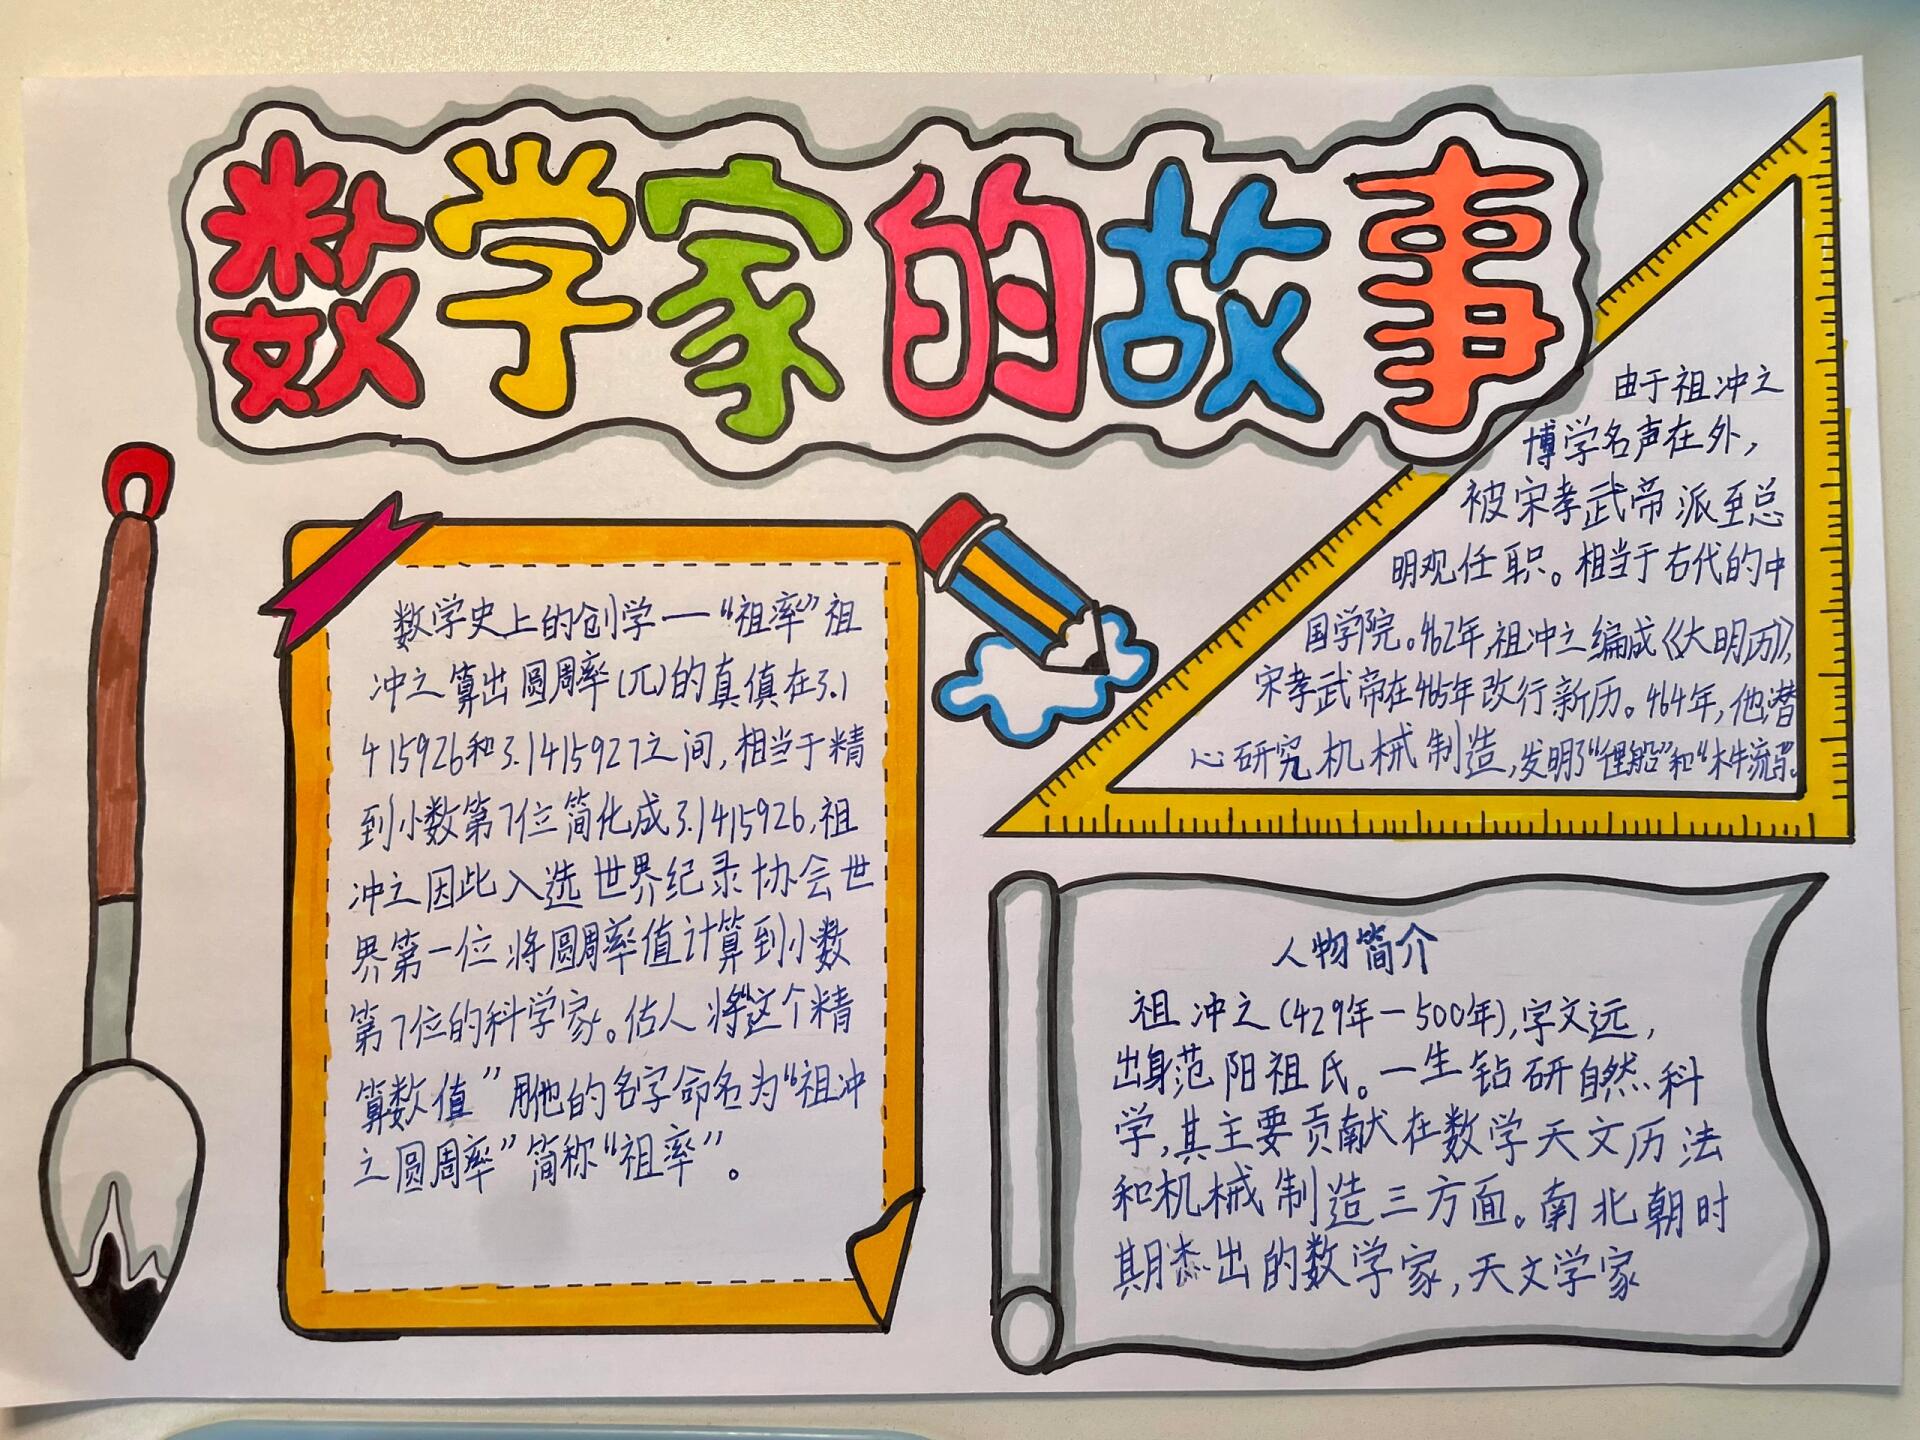 数学家的故事
数学史上的创学一一“祖率”祖
冲之算出圆周率(兀)的真值在3.1
415926和3.1415927之间,相当于精
到小数第7位简化成3.1415926,祖
冲之因此入选世界纪录协会世
界第一位将圆周率值计算到小数
第7位的科学家。估人将“这个精
算数值”用他的名字命名为“祖冲
之圆周率”简称“祖率”。
由于祖冲之
博学名声在外,
被宋孝武帝派至总
明观任职。相当于右代的中
国学院。462年,祖冲之编成《大明历》,
宋孝武帝在465年改行新历。464年,他潜
心研究机械制造,发明了“狸船”和“木牛流马”。
人物简介
祖冲之(429年一500年),字文远,
出身范阳祖氏。一生钻研自然科
学,其主要贡献在数学天文历法
和机械制造三方面。南北朝时
期杰出的数学家,天文学家